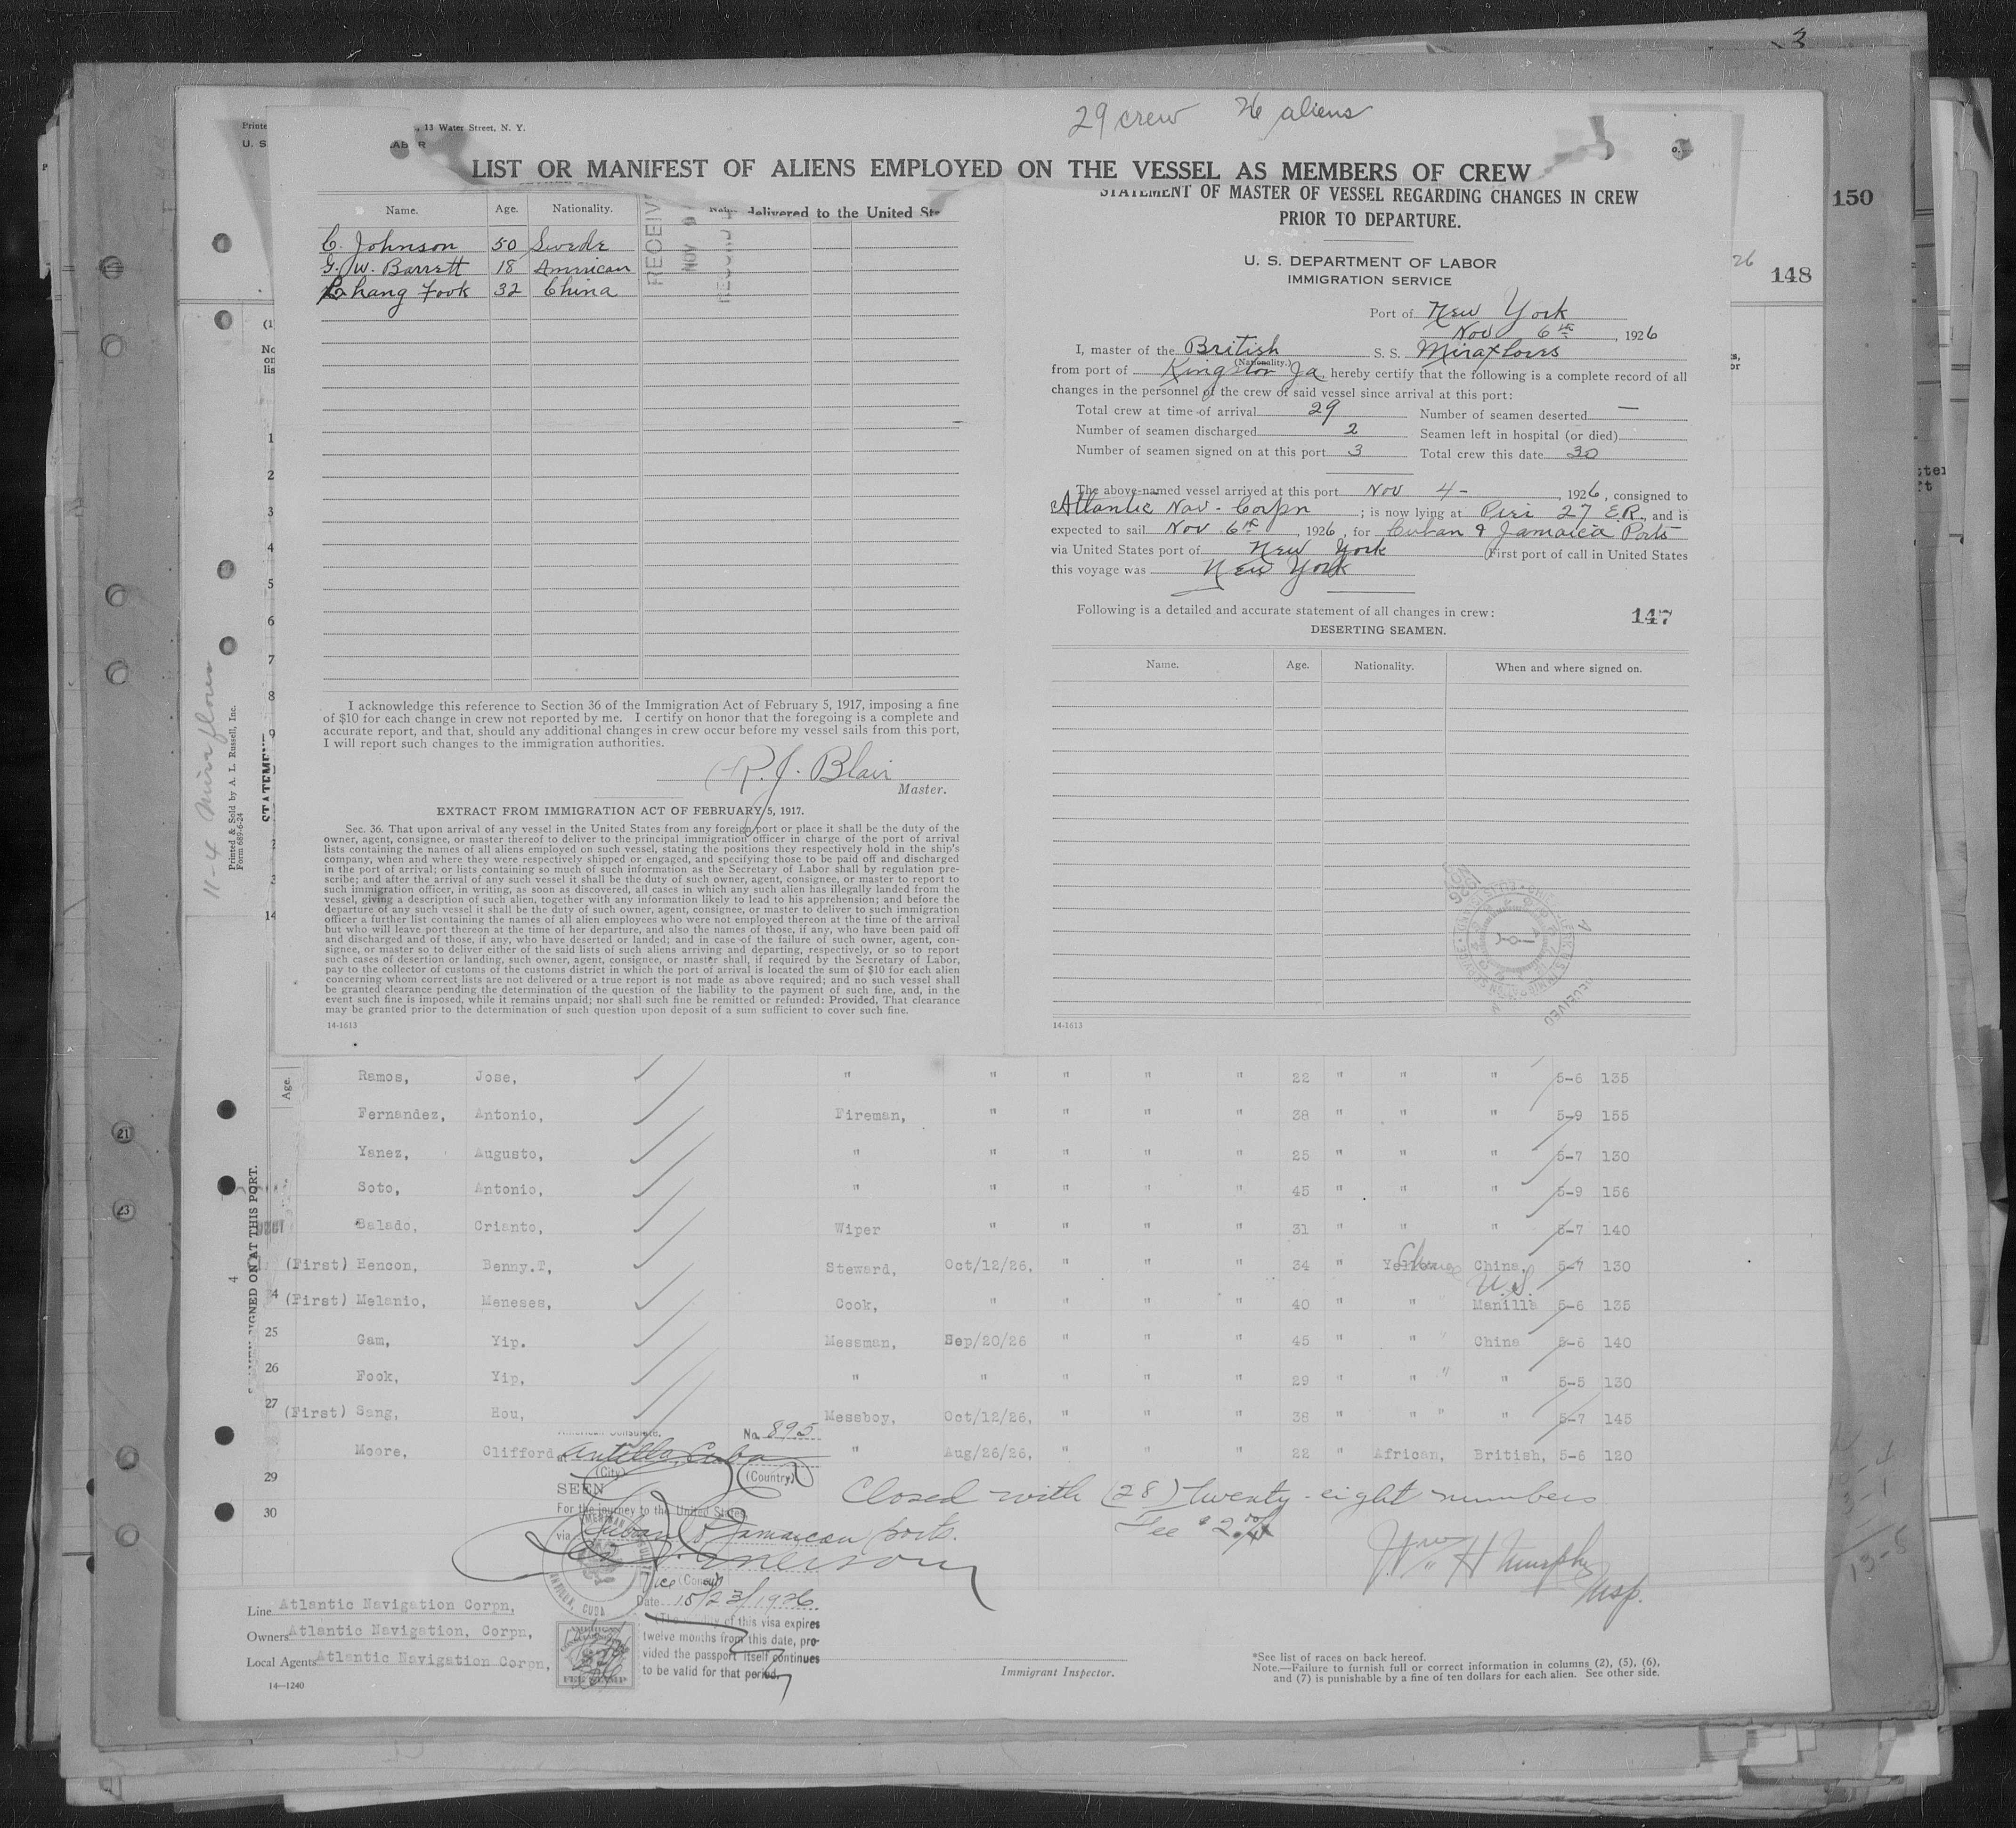 29 crew 26 aliens
3
, 13 Water Street, N. Y.
U. S.
LIST OR MANIFEST OF ALIENS EMPLOYED ON THE VESSEL AS MEMBERS OF CREW
150
148
Name. Age. Nationality.
delivered to the United
C. Johnson 50 Swede
G. W. Barrett 18 American
Chang Fook 32 China
RECEIV
NOV
I acknowledge this reference to Section 36 of the Immigration Act of February 5, 1917, imposing a fine
of $10 for each change in crew not reported by me. I certify on honor that the foregoing is a complete and
accurate report, and that, should any additional changes in crew occur before my vessel sails from this port,
I will report such changes to the immigration authorities.
R. J. Blair
Master.
EXTRACT FROM IMMIGRATION ACT OF FEBRUARY 5, 1917.
Sec. 36. That upon arrival of any vessel in the United States from any foreign port or place it shall be the duty of the
owner, agent, consignee, or master thereof to deliver to the principal immigration officer in charge of the port of arrival
lists containing the names of all aliens employed on such vessel, stating the positions they respectively hold in the ship's
company, when and where they were respectively shipped or engaged, and specifying those to be paid off and discharged
in the port of arrival; or lists containing so much of such information as the Secretary of Labor shall by regulation pre-
scribe; and after the arrival of any such vessel it shall be the duty of such owner, agent, consignee, or master to report to
such immigration officer, in writing, as soon as discovered, all cases in which any such alien has illegally landed from the
vessel, giving a description of such alien, together with any information likely to lead to his apprehension; and before the
departure of any such vessel it shall be the duty of such owner, agent, consignee, or master to deliver to such immigration
officer a further list containing the names of all alien employees who were not employed thereon at the time of the arrival
but who will leave port thereon at the time of her departure, and also the names of those, if any, who have been paid off
and discharged and of those, if any, who have deserted or landed; and in case of the failure of such owner, agent, con-
signee, or master so to deliver either of the said lists of such aliens arriving and departing, respectively, or so to report
such cases of desertion or landing, such owner, agent, consignee, or master shall, if required by the Secretary of Labor,
pay to the collector of customs of the customs district in which the port of arrival is located the sum of $10 for each alien
concerning whom correct lists are not delivered or a true report is not made as above required; and no such vessel shall
be granted clearance pending the determination of the question of the liability to the payment of such fine, and, in the
event such fine is imposed, while it remains unpaid; nor shall such fine be remitted or refunded: Provided, That clearance
may be granted prior to the determination of such question upon deposit of a sum sufficient to cover such fine.
14-1613
STATEMENT OF MASTER OF VESSEL REGARDING CHANGES IN CREW
PRIOR TO DEPARTURE.
U. S. DEPARTMENT OF LABOR
IMMIGRATION SERVICE
Port of New York
Nov 6th, 1926
I, master of the British S. S. Miraflores
(Nationality.)
from port of Kingston Ja, hereby certify that the following is a complete record of all
changes in the personnel of the crew of said vessel since arrival at this port:
Total crew at time of arrival 29 Number of seamen deserted —
Number of seamen discharged 2 Seamen left in hospital (or died)
Number of seamen signed on at this port 3 Total crew this date 30
The above-named vessel arrived at this port Nov 4-, 1926, consigned to
Atlantic Nav. Corpn; is now lying at Pier 27 E.R., and is
expected to sail Nov 6th, 1926, for Cuban & Jamaica Ports
via United States port of New York (First port of call in United States
this voyage was New York
Following is a detailed and accurate statement of all changes in crew:
147
DESERTING SEAMEN.
Name. Age. Nationality. When and where signed on.
RECEIVED
14-1613
11-4 Miraflores
Printed & Sold by A. L. Russell, Inc.
Form 689-6-24
SIGNED ON AT THIS PORT.
Age.
Ramos, Jose, " " " " " 22 " " " 5-6 135
Fernandez, Antonio, Fireman, " " " " 38 " " " 5-9 155
Yanez, Augusto, " " " " " 25 " " " 5-7 130
Soto, Antonio, " " " " " 45 " " " 5-9 156
Balado, Crianto, Wiper " " " " 31 " " " 5-7 140
(First) Hencon, Benny.T, Steward, Oct/12/26, " " " 34 " China, 5-7 130
U.S.
(First) Melanio, Meneses, Cook, " " " " 40 " " Manilla 5-6 135
25 Gam, Yip. Messman, Sep/20/26 " " " 45 " " China 5-6 140
26 Fook, Yip, " " " " " 29 " " " 5-5 130
27 (First) Sang, Hou, Messboy, Oct/12/26, " " " 38 " " " 5-7 145
Moore, Clifford " Aug/26/26, " " " 22 " African, British, 5-6 120
29
30
American Consulate, No. 895
Antilla, Cuba
(City) (Country)
SEEN
For the journey to the United States,
via Cuban & Jamaican ports.
Vice (Consul)
Date
of this visa expires
twelve months from this date, pro-
vided the passport itself continues
to be valid for that period.
ANTILLA, CUBA
FEE STAMP
Closed with (28) twenty-eight numbers
Fee $2.00
Wm H Murphy
Insp.
Line Atlantic Navigation Corpn,
Owners Atlantic Navigation, Corpn,
Local Agents Atlantic Navigation Corpn,
14—1240
Immigrant Inspector.
*See list of races on back hereof.
Note.—Failure to furnish full or correct information in columns (2), (5), (6),
and (7) is punishable by a fine of ten dollars for each alien. See other side.